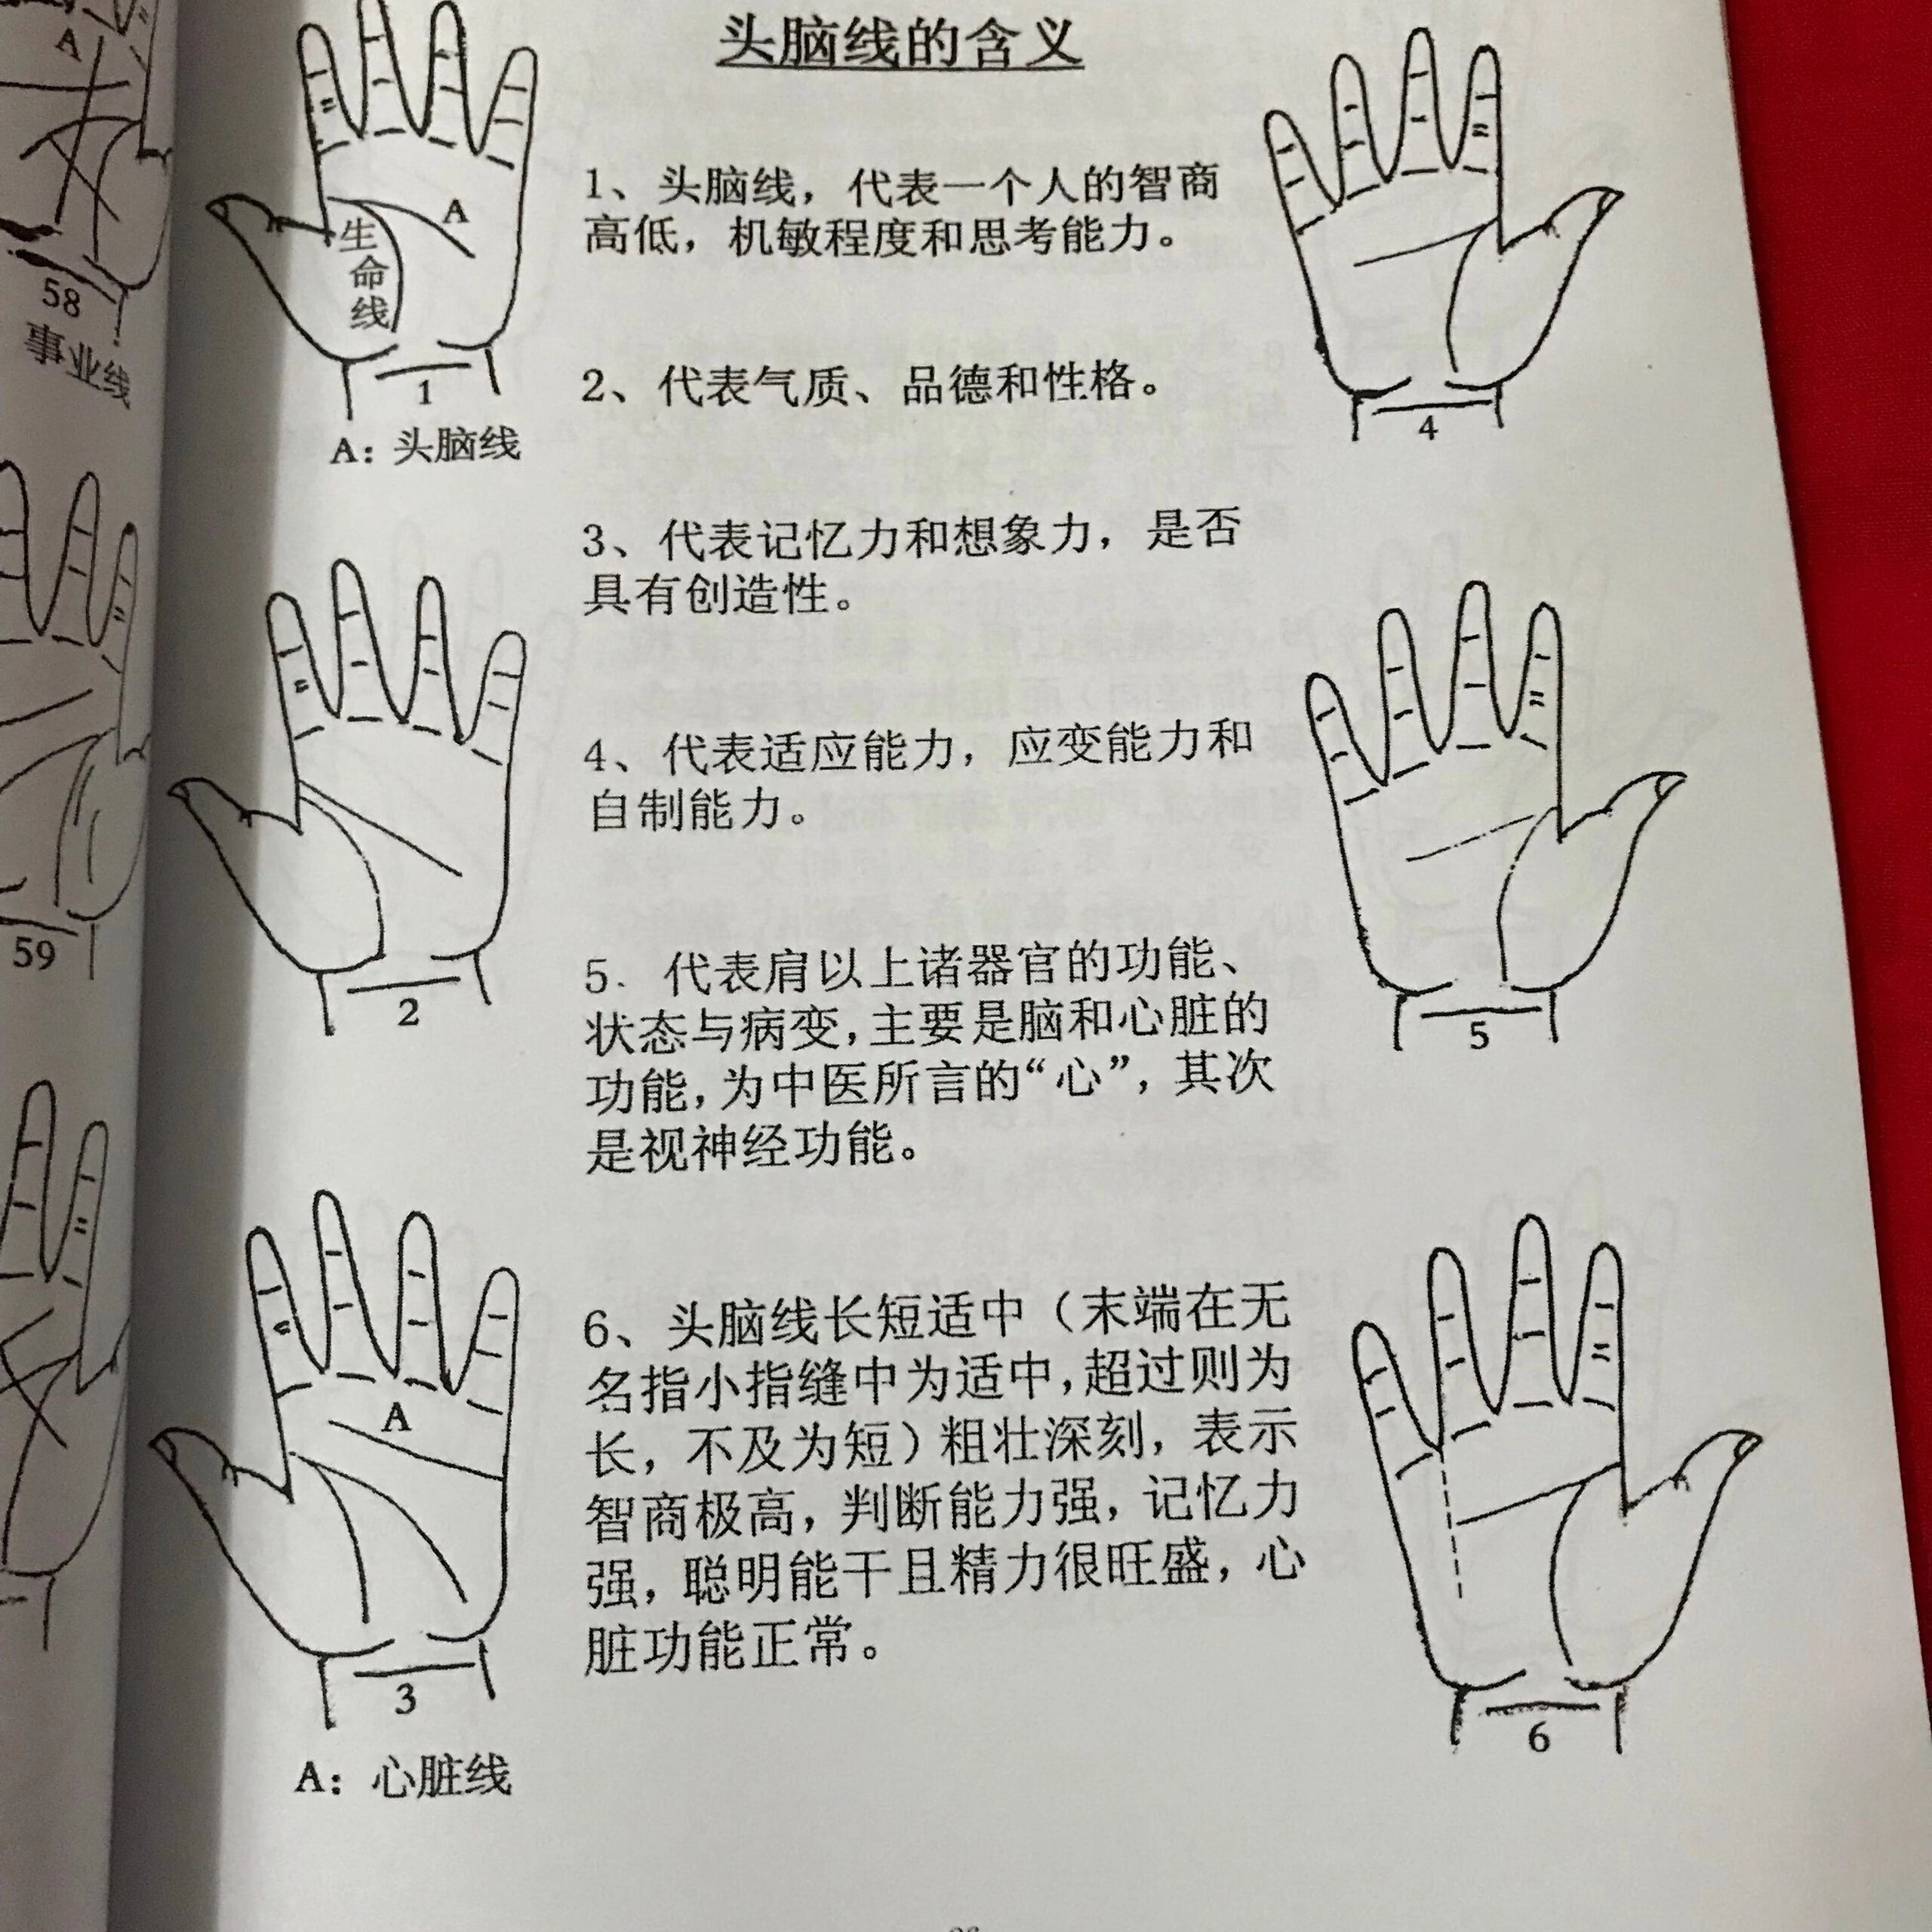 头脑线的含义
1、头脑线，代表一个人的智商
高低，机敏程度和思考能力。
2、代表气质、品德和性格。
3、代表记忆力和想象力，是否
具有创造性。
4、代表适应能力，应变能力和
自制能力。
5．代表肩以上诸器官的功能、
状态与病变，主要是脑和心脏的
功能，为中医所言的“心”，其次
是视神经功能。
6、头脑线长短适中（末端在无
名指小指缝中为适中，超过则为
长，不及为短）粗壮深刻，表示
智商极高，判断能力强，记忆力
强，聪明能干且精力很旺盛，心
脏功能正常。
A
生
命
线
1
A：头脑线
2
A
3
A：心脏线
4
5
6
A
58
事业线
59